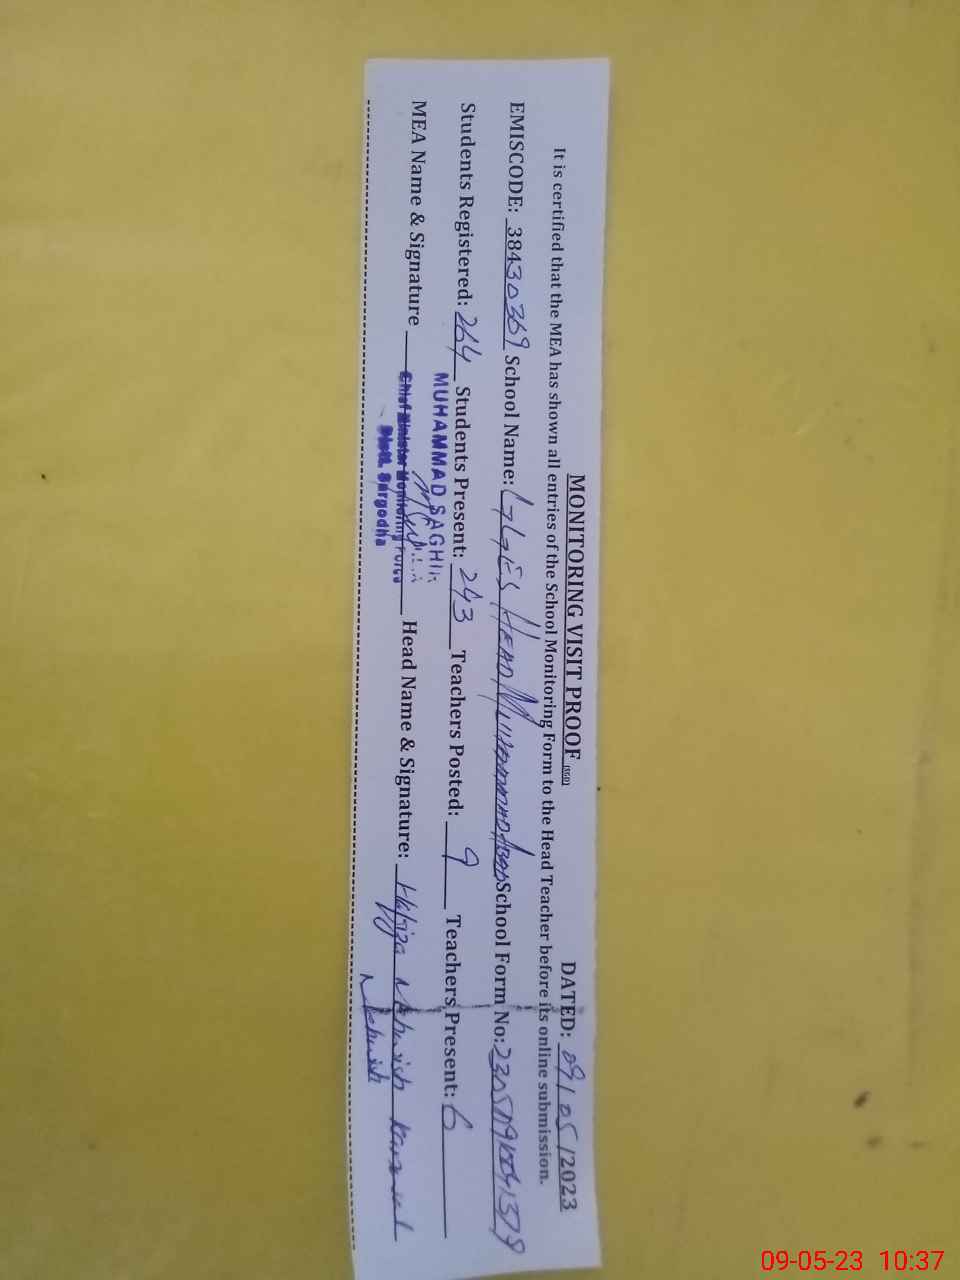 MONITORING VISIT PROOF (SSD) DATED: 09/05/2023
It is certified that the MEA has shown all entries of the School Monitoring Form to the Head Teacher before its online submission.
EMISCODE: 38430369 School Name: GGES HEAD MUHAMMAD School Form No:
Students Registered: 264 Students Present: 243 Teachers Posted: 9 Teachers Present: 6
MUHAMMAD SAGHIR
MEA Name & Signature Head Name & Signature: Hafiza Mehwish
Chief Minister Monitoring Force
Distt. Sargodha
Mehwish
09-05-23 10:37